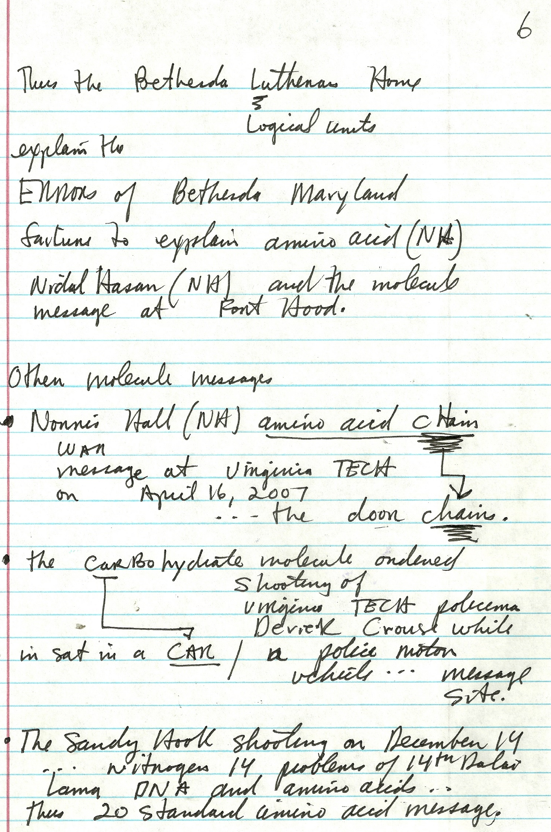 6
Thus the Bethesda Lutheran Home
&
Logical units
explain the
ERRORS of Bethesda Maryland
failure to explain amino acid (NH)
Nidal Hasan (NH) and the molecule
message at Font Hood.
Other molecule messages
• Norris Hall (NH) amino acid chain
WAR
message at Virginia TECH
on April 16, 2007
... - the door chains.
• the CARBohydrate molecule ordered
shooting of
Virginia TECH policema
Derrick Crouse while
in sat in a CAR / a police motor
vehicle ... message
site.
• The Sandy Hook shooting on December 14
.... nitrogen 14 problems of 14th Dalai
Lama DNA and amino acids ..
thus 20 standard amino acid message.